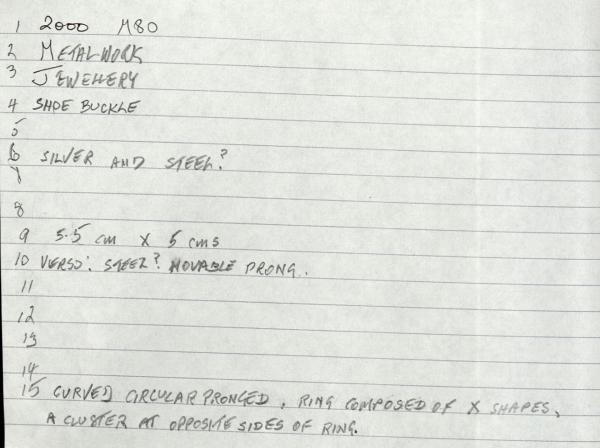 1 2000 M80
2 METALWORK
3 JEWELLERY
4 SHOE BUCKLE
5
6 SILVER AND STEEL?
7
8
9 5.5 cm X 5 cms
10 VERSO: STEEL? MOVABLE PRONG.
11
12
13
14
15 CURVED CIRCULAR PRONGED, RING COMPOSED OF X SHAPES,
A CLUSTER AT OPPOSITE SIDES OF RING.